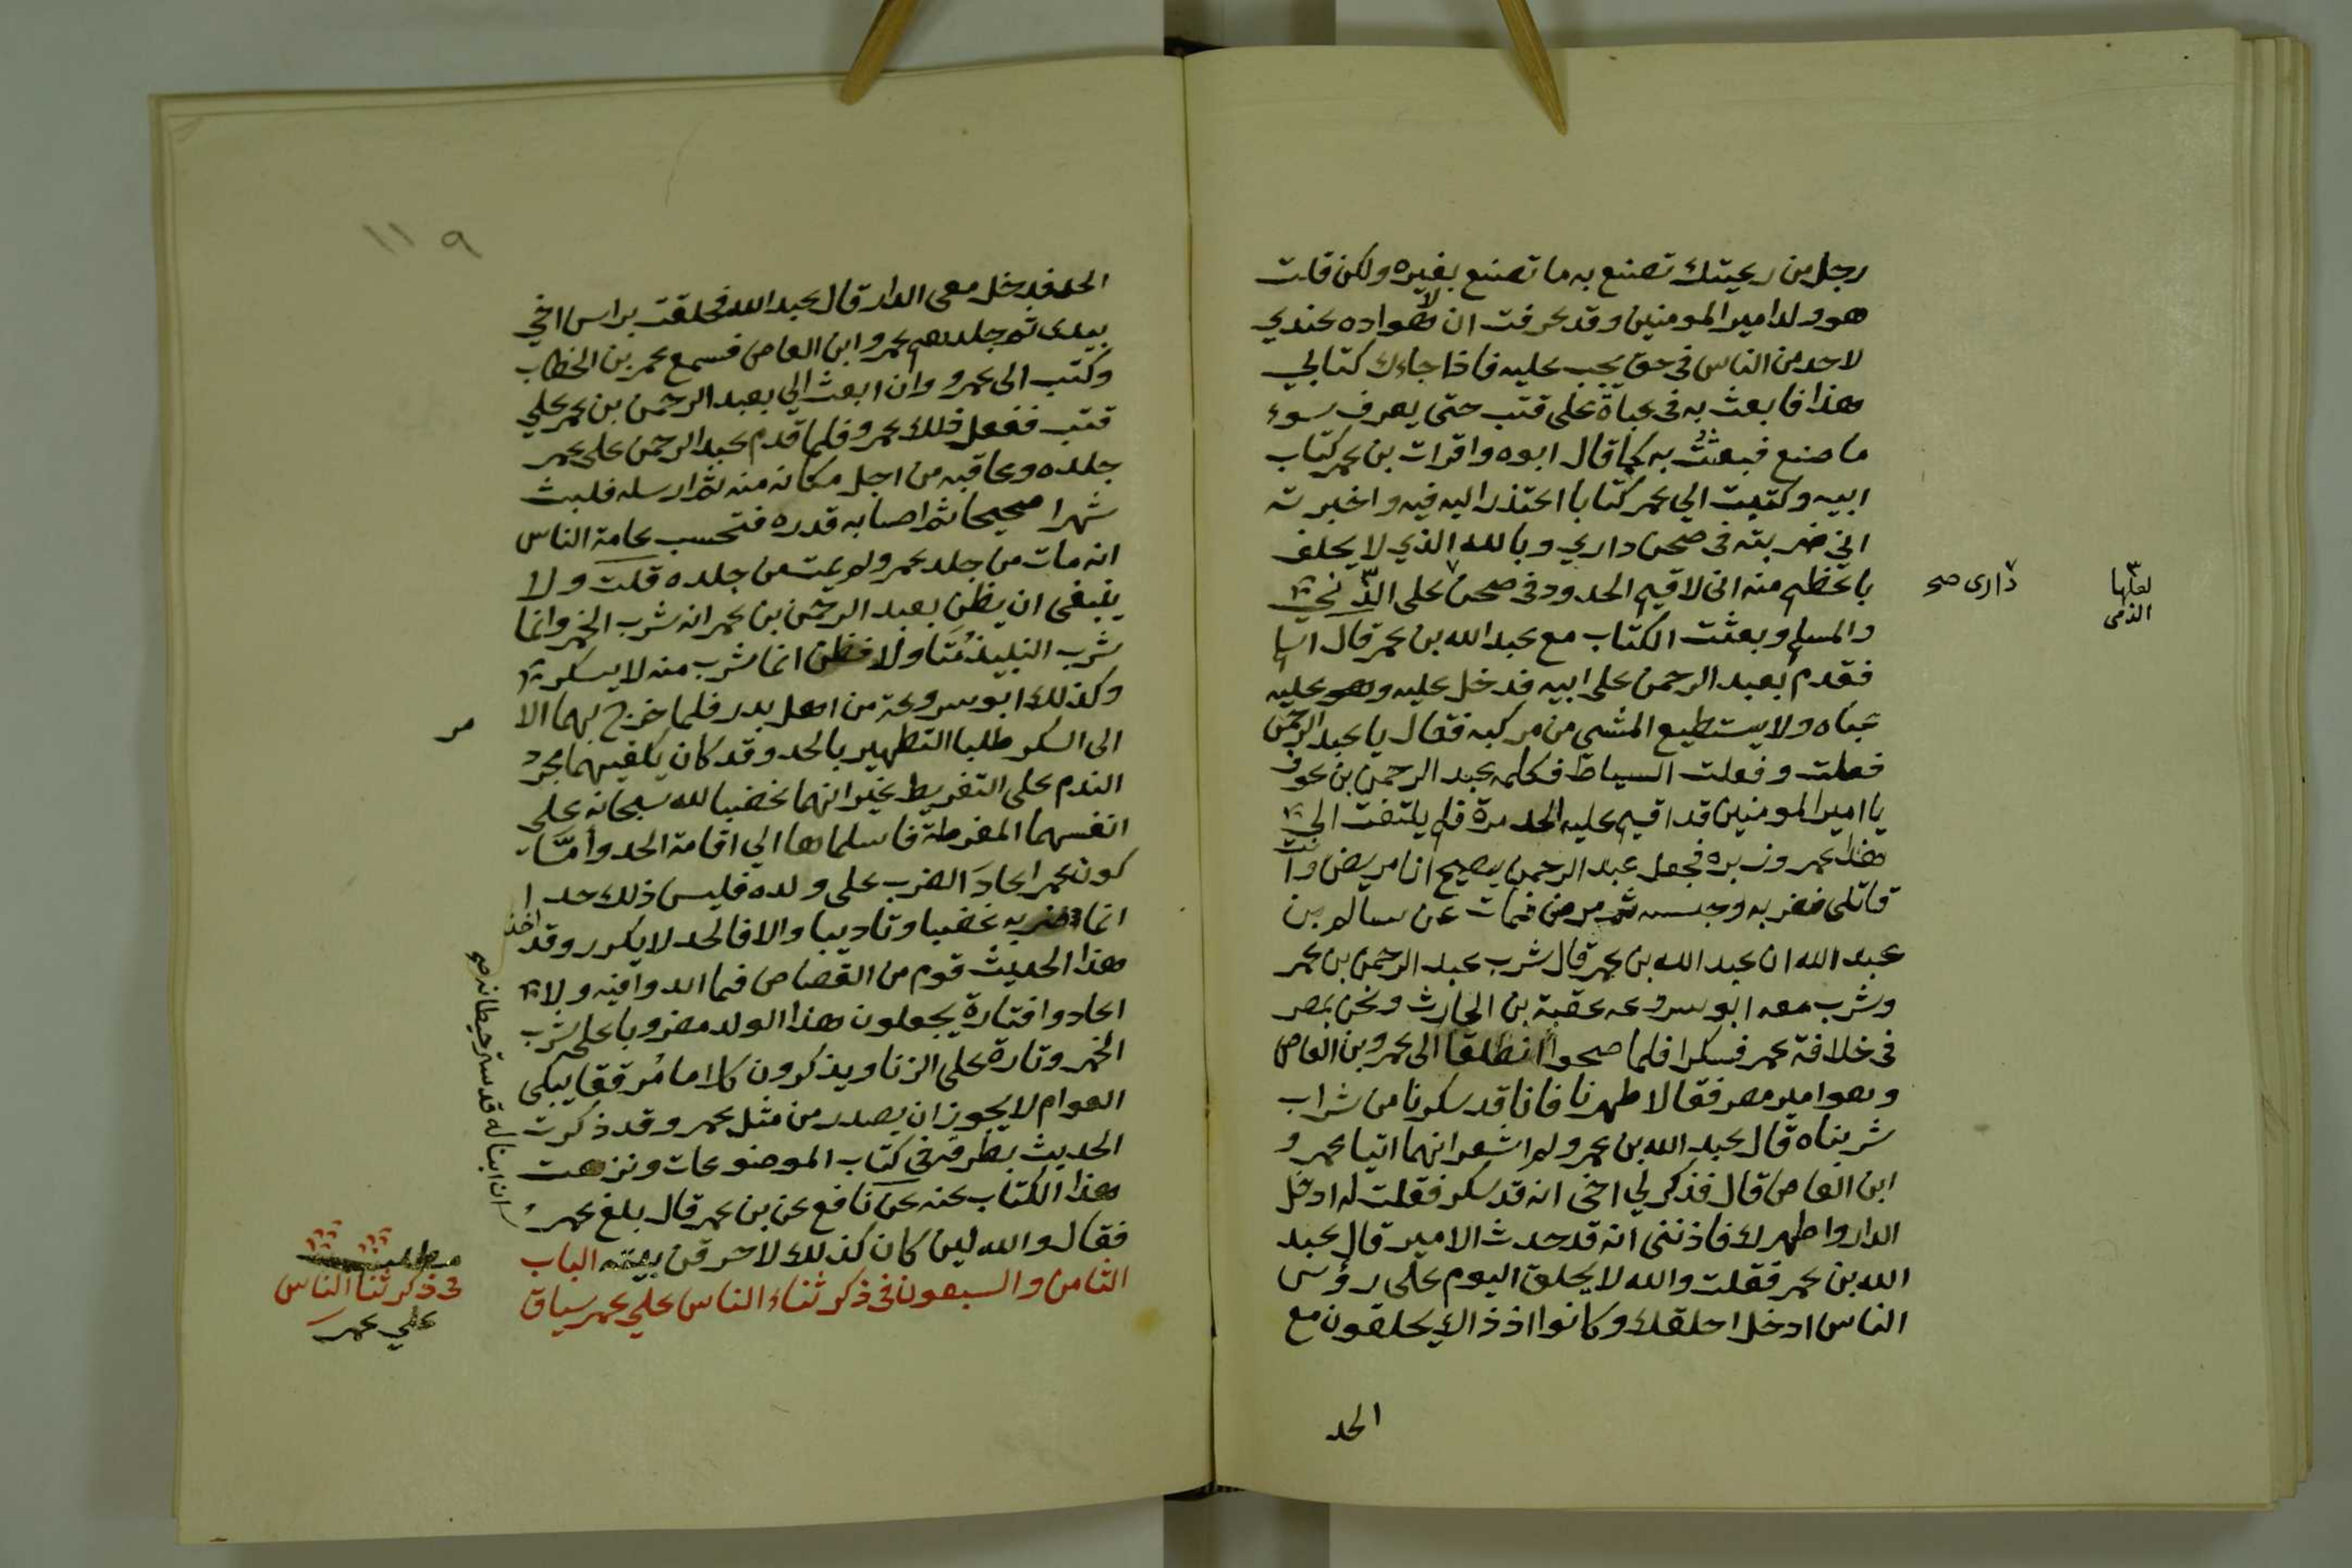 رجل من رعيتك تصنع به ما تصنع بغيره ولكن قلت
هو ولد امير المومنين وقد عرفت ان لا هواده عندي
لاحد من الناس في حق يجب عليه فاذا جاءك كتابي
هذا فابعث به في عباة على قتب حتى يعرف سوء
ما صنع فبعثتُ به كما قال ابوه واقرات بن عمر كتاب
ابيه وكتبت الي عمر كتابا اعتذر اليه فيه واخبرته
اني ضربته في صحن داري وبالله الذي لا يحلف
باعظم منه اني لاقيم الحدود في صحن على الذنحي
داري صح
لعلها
الذمى
والمسلم وبعثت الكتاب مع عبد الله بن عمر قال اسلم
فقدم بعبد الرحمن على ابيه فدخل عليه وهو عليه
عباه ولا يستطيع المشي من مركبه فقال يا عبد الرحمن
فعلت وفعلت السياط فكلمه عبد الرحمن بن عوف
يا امير المومنين قد اقيم عليه الحد مرة فلم يلتفت الي
هذا عمر وزبره فجعل عبد الرحمن يصيح انا مريض وانت
قاتلى فضربه وحبسه ثم مرض فمات عن سالم بن
عبد الله ان عبد الله بن عمر قال شرب عبد الرحمن بن عمر
وشرب معه ابو سروعه عقبة بن الحارث ونحن بمصر
في خلافة عمر فسكرا فلما صحوا انطلقا الى عمرو بن العاص
وهو امير مصر فقالا طهرنا فانا قد سكرنا من شراب
شربناه قال عبد الله بن عمر ولم اشعر انهما اتيا عمرو
ابن العاص قال فذكر لي اخي انه قد سكر فقلت له ادخل
الدار واطهرك فاذنني انه قد حدث الامير قال عبد
الله بن عمر فقلت والله لا يحلق اليوم على رؤس
الناس ادخل احلقك وكانوا اذ ذاك يحلقون مع
الحد
١١٩
الحد فدخل معي الدار قال عبد الله فحلقت براس اخي
بيدى ثم جلدهم عمرو ابن العاص فسمع عمر بن الخطاب
وكتب الى عمرو وان ابعث الي بعبد الرحمن بن عمر علي
قتب ففعل ذلك عمرو فلما قدم عبد الرحمن على عمر
جلده وعاقبه من اجل مكانه منه ثم ارسله فلبث
شهرا صحيحا ثم اصابه قدره فتحسب عامة الناس
انه مات من جلد عمر ولم يمت من جلده قلت ولا
ينبغي ان يظن بعبد الرحمن بن عمر انه شرب الخمر وانما
شرب النبيذ مُتَاولا فظن انما شرب منه لا يسكر
وكذلك ابو سروعة من اهل بدر فلما خرج بهما الا
مر
الى السكر طلبا التطهير بالحد وقد كان يكفيهما مجرد
الندم على التفريط غير انهما غضبا لله سبحانه على
انفسهما المفرطة فاسلماها الي اقامة الحد وأمَّا
كون عمر اعادَ الضرب على ولده فليس ذلك حدا
انما ضربه غضبا وتاديبا والا فالحد لا يكرر وقد اخذ
هذا الحديث قوم من القصاص فما ابدوا فيه ولا
اعادوا فتارة يجعلون هذا الولد مضروبا على شرب
الخمر وتارة على الزنا ويذكرون كلاما مُرققا يبكى
العوام لا يجوز ان يصدر من مثل عمر وقد ذكرت
الحديث بطرقه في كتاب الموضوعات ونزهت
هذا الكتاب عنه عن نافع عن بن عمر قال بلغ عمرُ
ان ابنا له قد ستر حيطانه صح
فقال والله لين كان كذلك لاحرقن بيته الباب
الثامن والسبعون في ذكر ثناء الناس علي عمر سياق
مطلب
في ذكر ثنا الناس
علي عمر